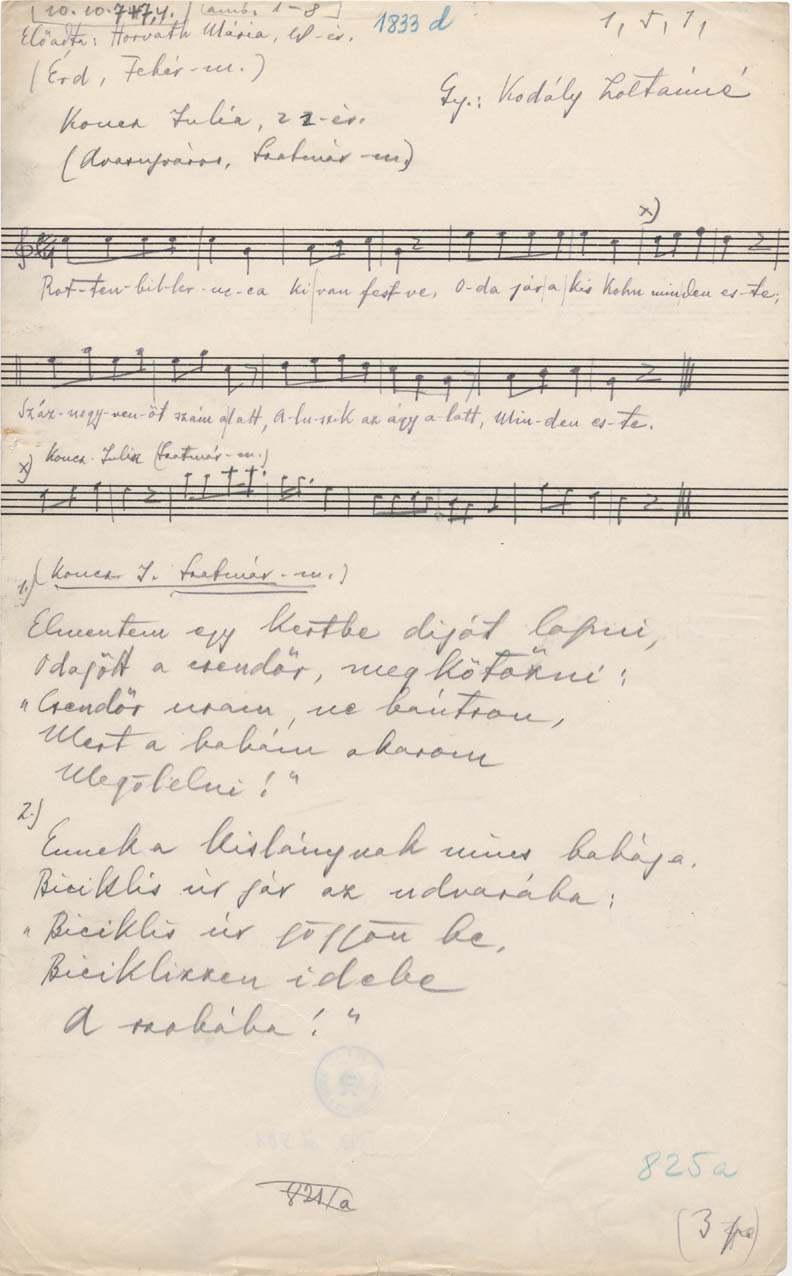 [10.10.7.4.7.4.] [amb: 1-8]
Előadta: Horváth Mária, -és. 1833 d 1, 5, 1,
(Érd, Fehér-m.)
Gy.: Kodály Zoltánné
Koncz Julia, 22-év.
(Avasujváros, Szatmár-m.)
x)
Rot-ten-bil-ler-uc-ca Ki van fest-ve, O-da jár a kis Kohn minden es-te;
Száz-negy-ven-öt szám alatt, A-lu-szik az ágy a-latt, Min-den es-te.
x) Koncz Julia (Szatmár-m.)
1.) (Koncz J. Szatmár-m.)
Elmentem egy kertbe diót lopni,
Odajött a csendőr, megkötözni:
"Csendőr uram, ne bántson,
Mert a babám akarom
Megölelni!"
2.)
Ennek a kislánynak nincs babája.
Biciklis úr jár az udvarába:
"Biciklis úr jöjjön be,
Biciklizzen idebe
A szobába!"
825a
821/a
(3 )